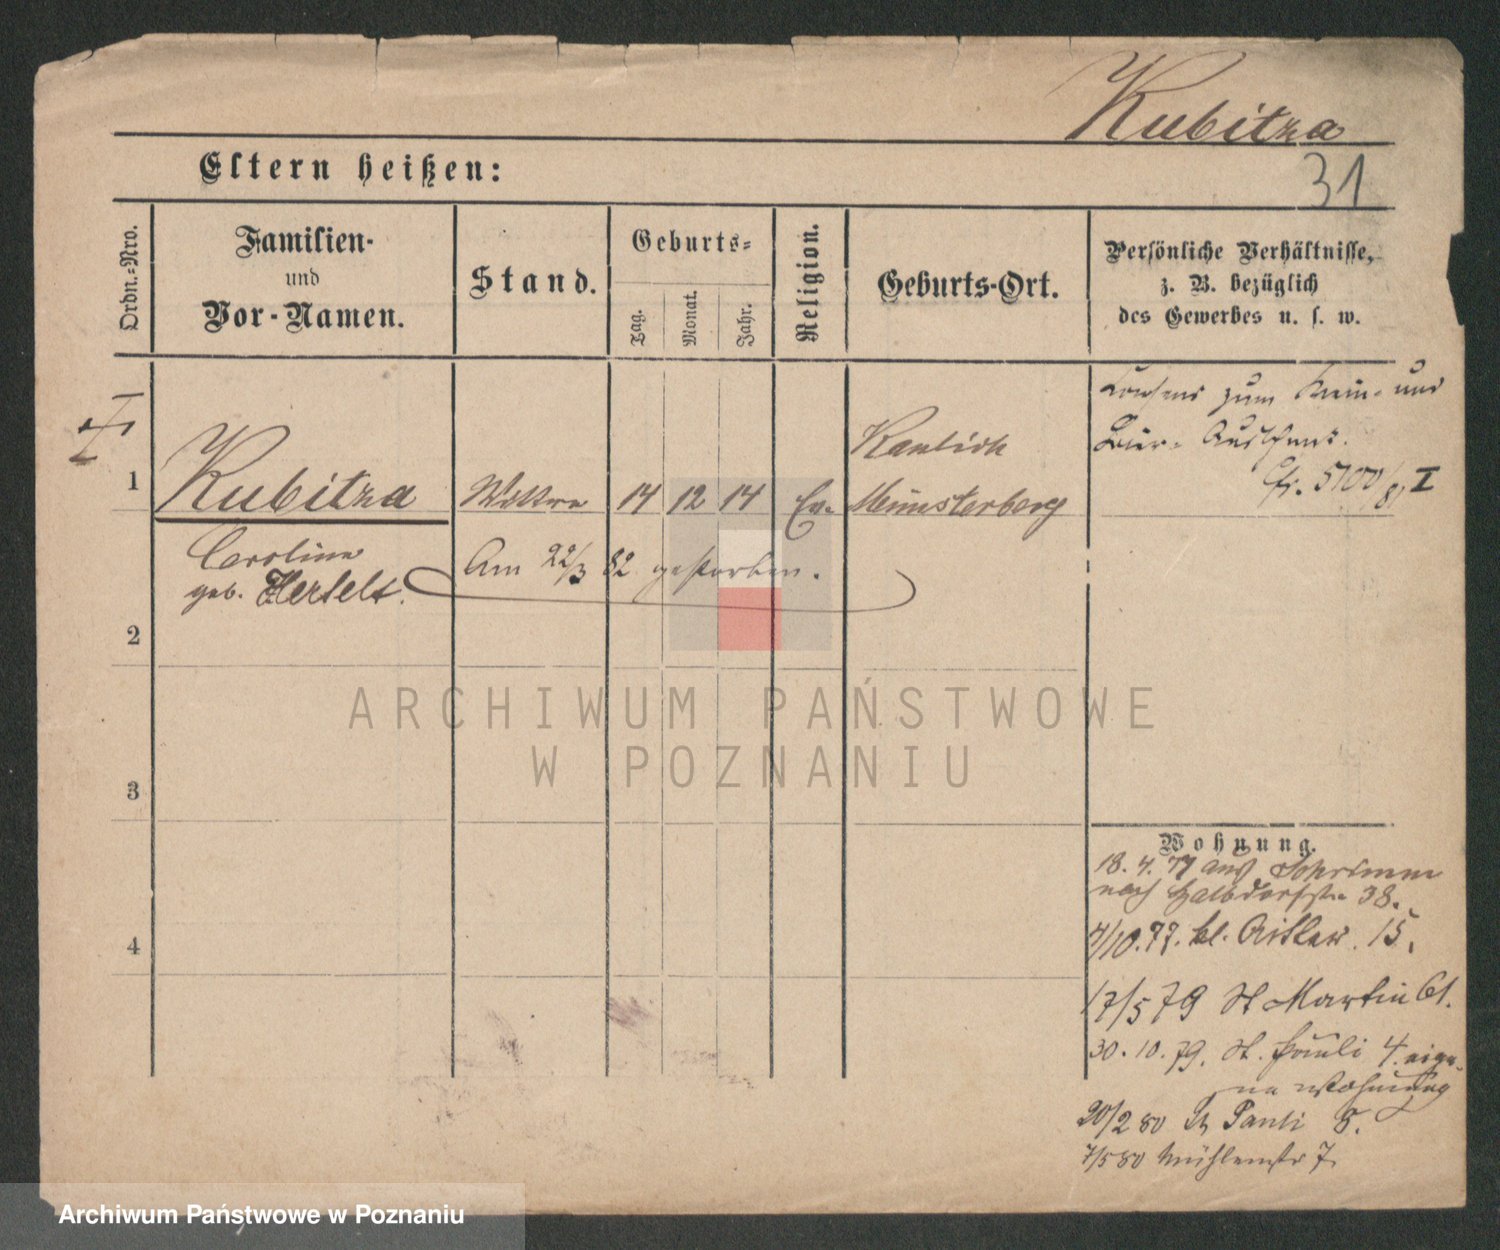 Kubitza
31
Eltern heißen:
Ordn.-Nro.
Familien-
und
Vor-Namen.
Stand.
Geburts-
Tag.
Monat.
Jahr.
Religion.
Geburts-Ort.
Persönliche Verhältnisse,
z. B. bezüglich
des Gewerbes u. s. w.
Consens zum Wein- und
Bier-
5100/81 I
1
Kubitza
Wittwe
14
12
14
Ev.
Münsterberg
Caroline
geb. Hertelt.
Am 22/3 82 gestorben.
2
3
4
Wohnung.
18. 4. 77 aus Schrimm
nach Halbdorfstr 38.
4/10. 77. kl. Ritter. 15.
17/5 79 St Martin 61.
30. 10. 79. St. Pauli 4. eige-
ne Wohnung
20/2 80 St Pauli 8.
7/5 80 Mühlenstr 7.
ARCHIWUM PAŃSTWOWE
W POZNANIU
Archiwum Państwowe w Poznaniu